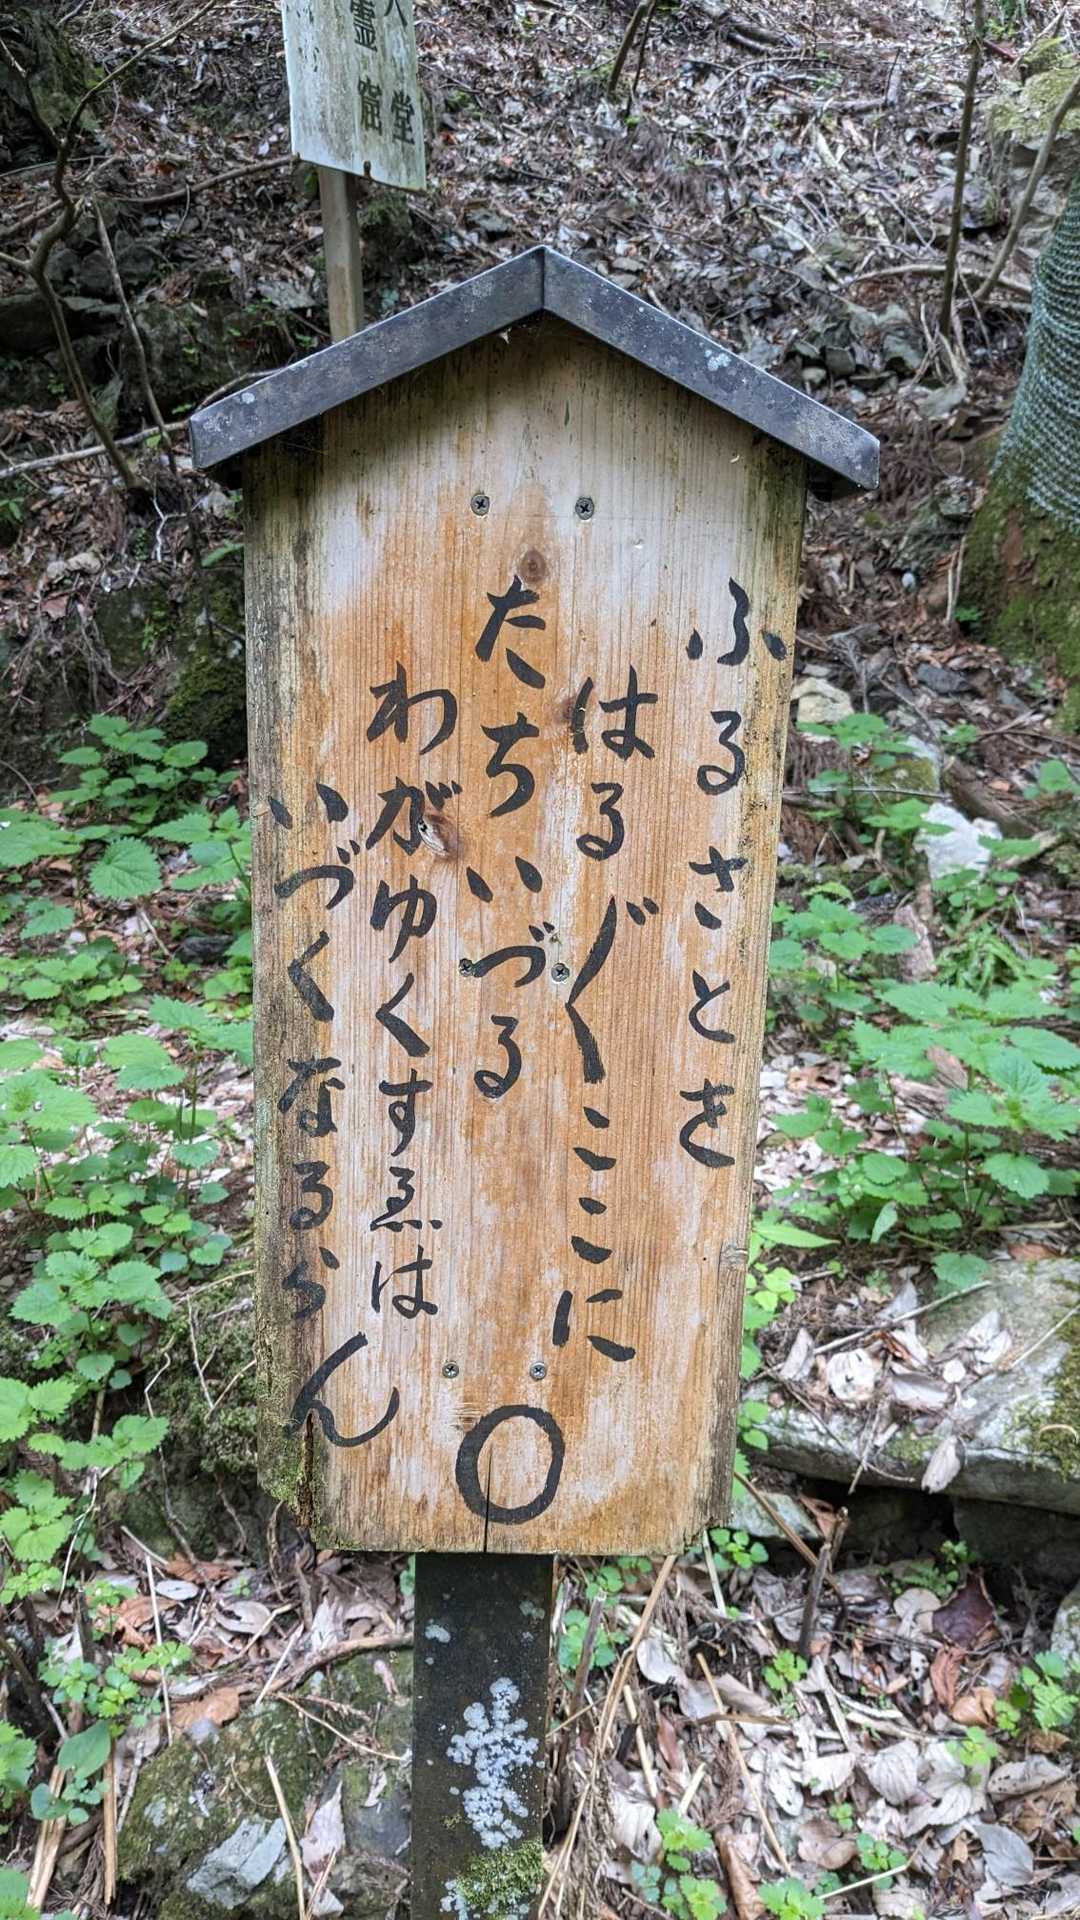 ふるさとを
はる〴〵ここに
たちいづる
わがゆくすゑは
いづくなるらん
○
堂
霊窟